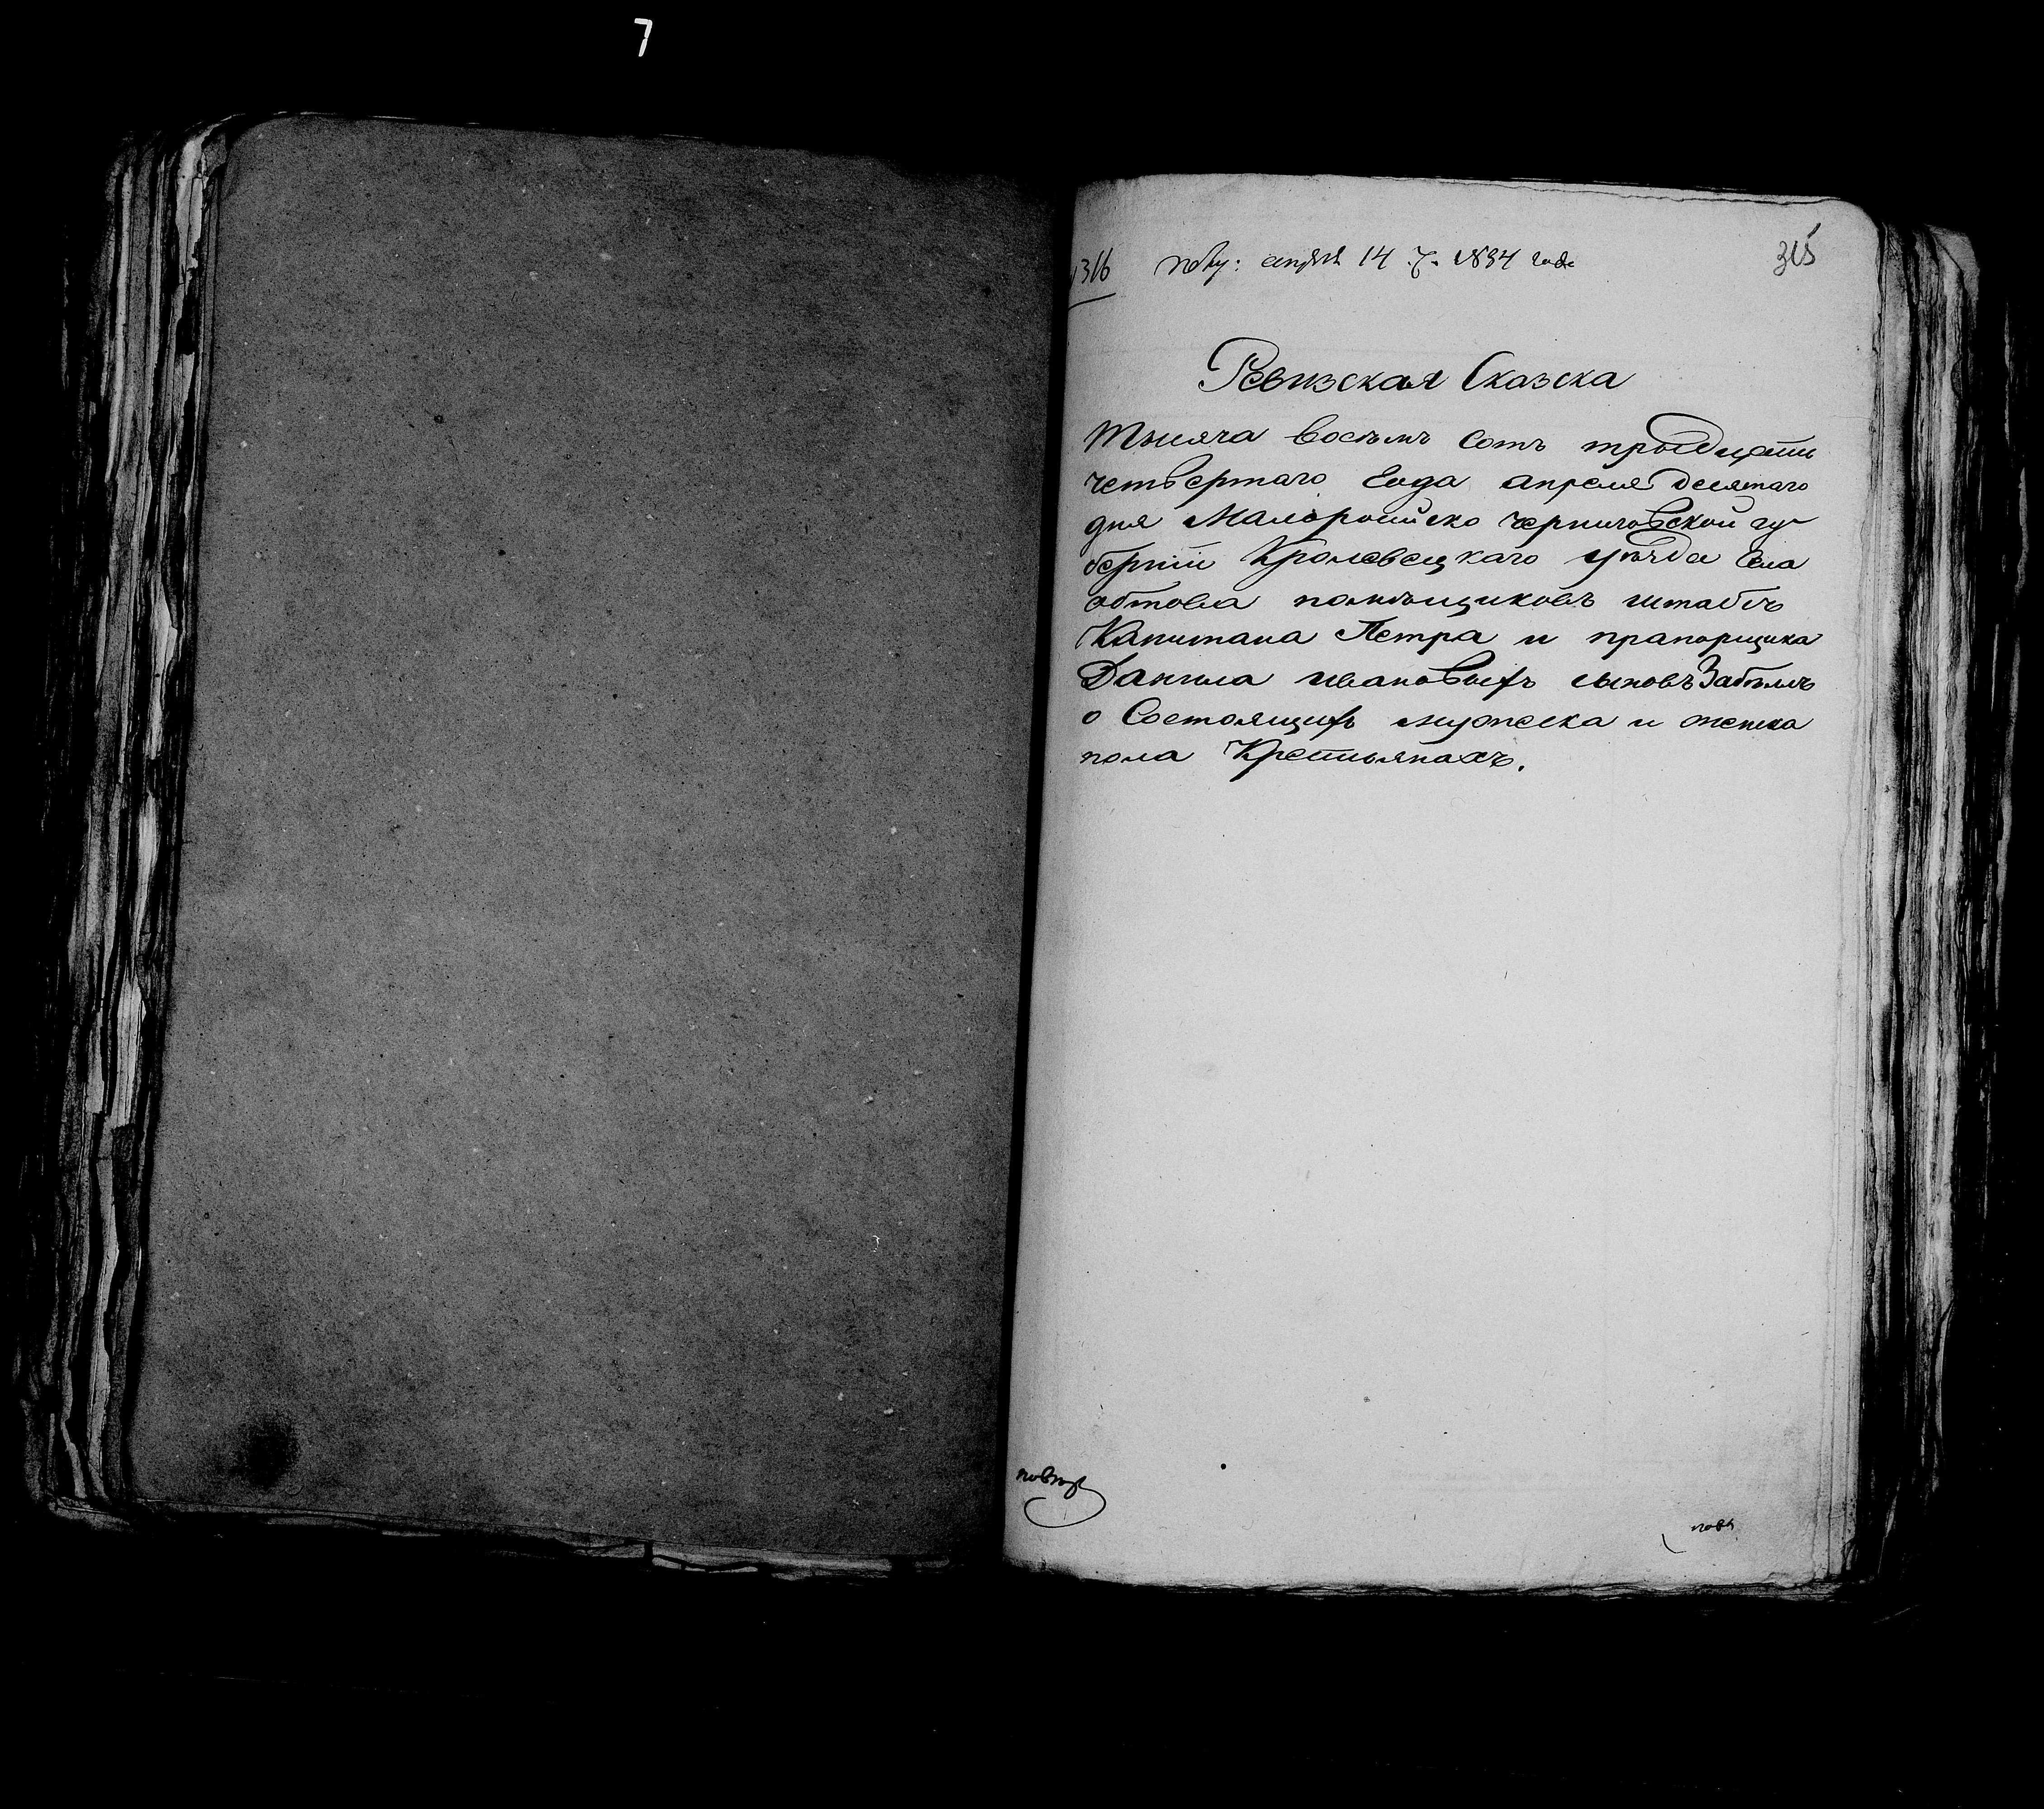 7
316 апреля 14 1834 года 315
Ревизская Сказска
Тысяча восемъ сотъ тридцати
четвертаго года апреля десятаго
дня Малоросийско черниговской гу-
бернии Кролевецкаго уѣзда Села
обтова помѣщиковъ штабсъ
Капитана Петра и прапорщика
Данила ивановыхъ сыновъ Забѣлъ
о Состоящихъ мужеска и женска
пола Крестьянахъ.